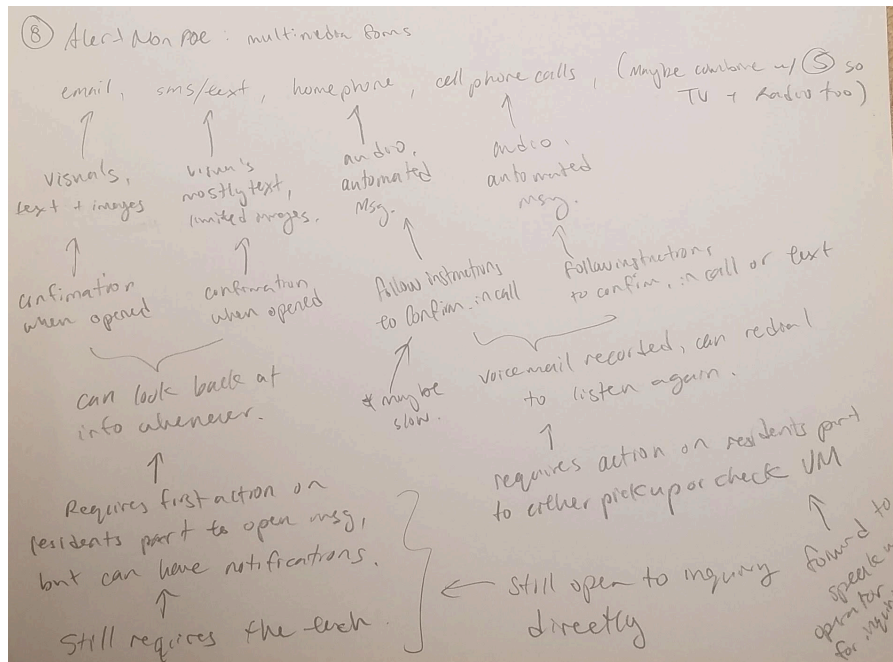 8 Alert Non POE: multimedia forms
email, sms/text, homephone, cell phone calls, (Maybe combine w/ 5 so
TV + Radio too)
visuals,
text + images
visuals
mostly text,
limited images.
audio,
automated
msg.
audio,
automated
msg.
confirmation
when opened
confirmation
when opened
follow instructions
to confirm. in call
follow instructions
to confirm, in call or text
can look back at
info whenever.
* maybe
slow.
voicemail recorded, can redial
to listen again.
Requires first action on
residents part to open msg,
but can have notifications.
requires action on residents part
to either pickup or check VM
Still requires the tech.
Still open to inquiry
directly
forward to
speak w
operator
for inquir